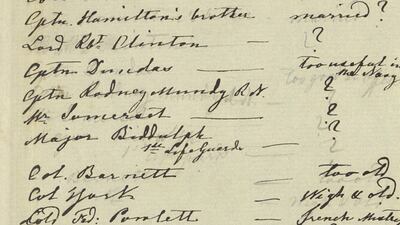 Cptn. Hamilton's brother married?
Lord Rbt. Clinton — ?
Cptn Dundas — too useful in the Navy
Cptn Rodney Mundy R.N. ?
Mr Somerset — ?
Major Biddulph
1st Life Guards — ?
Col. Barnett — too old
Col York — High & old.
Col Fed: Powlett — french Mistr